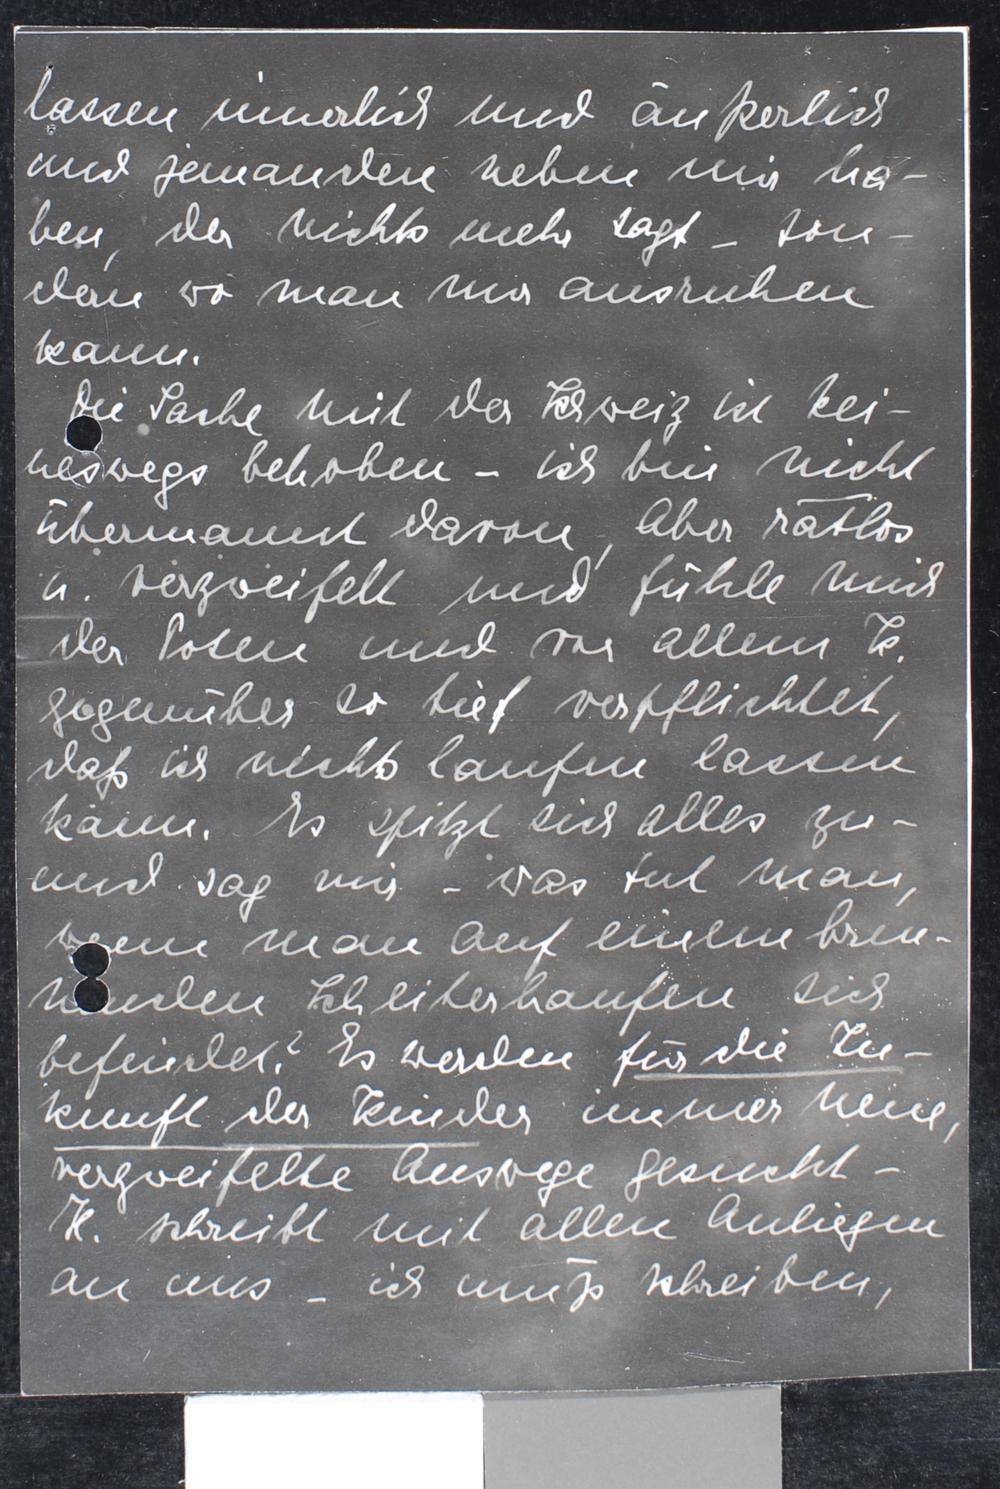 lassen innerlich und äußerlich
und jemanden neben mir ha-
ben, der nichts mehr sagt – son-
dern wo man nur ausruhen
kann.
Die Sache mit der Schweiz ist kei-
neswegs behoben – ich bin nicht
übermannt davon, aber ratlos
u. verzweifelt und fühle mich
der Toten und vor allem K.
gegenüber so tief verpflichtet,
daß ich nichts laufen lassen
kann. Es spitzt sich alles zu –
und sag mir – was tut man,
wenn man auf einem bren-
nenden Scheiterhaufen sich
befindet? Es werden für die Zu-
kunft der Kinder immer neue,
verzweifelte Auswege gesucht –
K. schreibt mit allen Anliegen
an uns – ich muß schreiben,